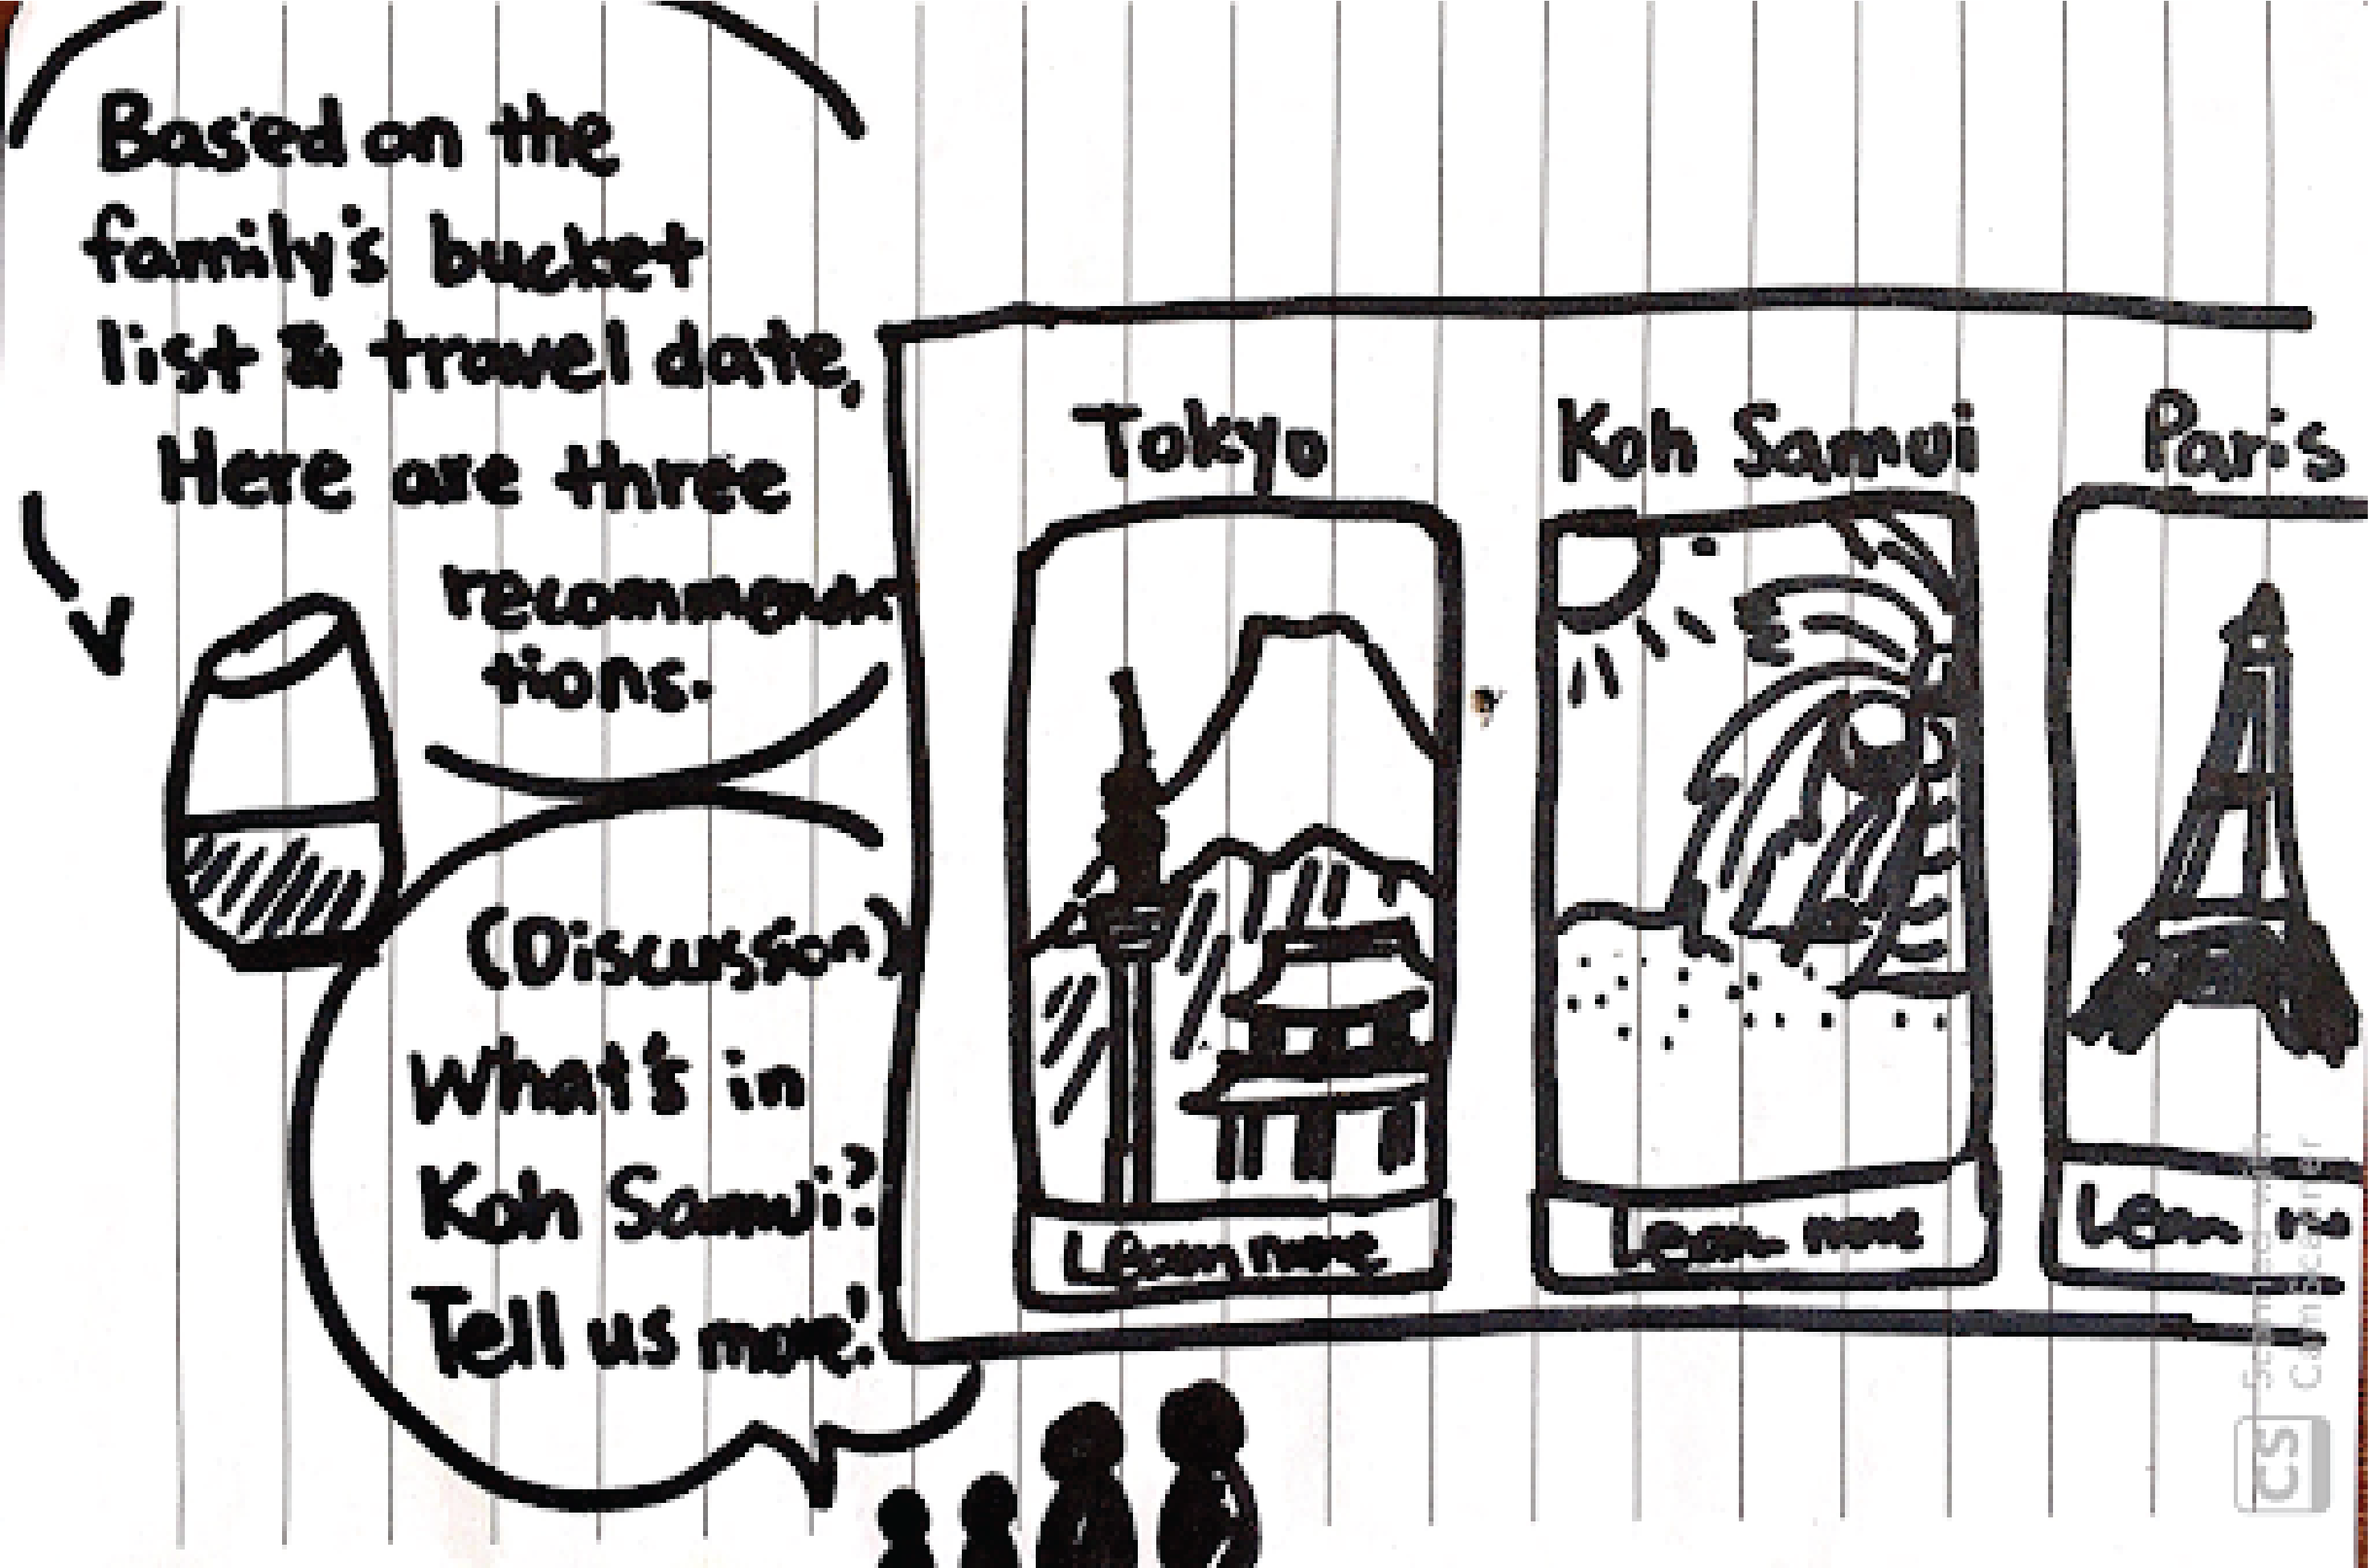 Based on the
family's bucket
list & travel date,
Here are three
recommenda
tions.
(Discussion)
What's in
Koh Samui?
Tell us more!
Tokyo
Learn more
Koh Samui
Learn more
Paris
Learn mo
Scanned with
CamScanner
CS